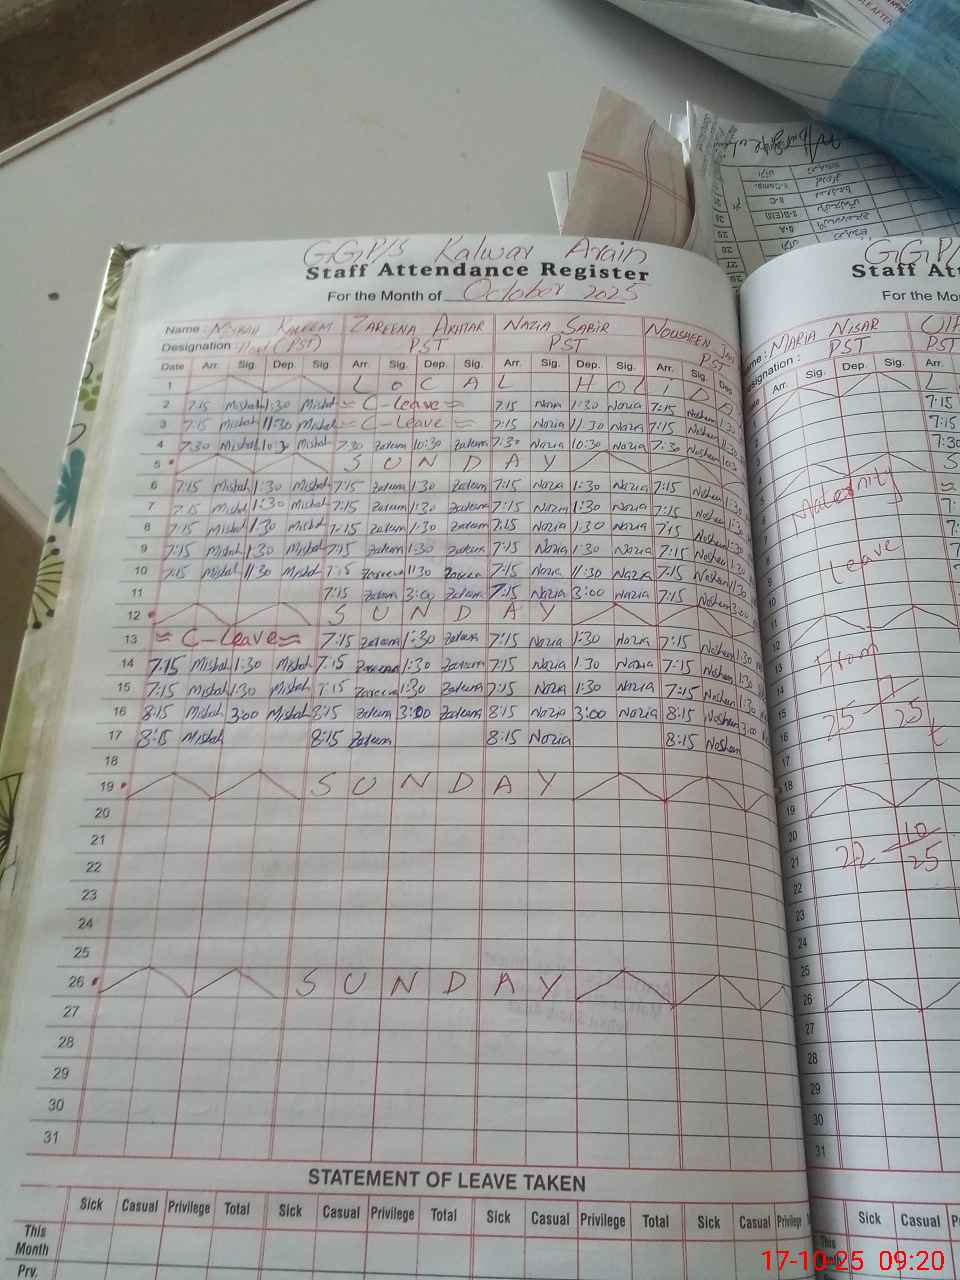 GGP/S Kalwar Arain
Staff Attendance Register
For the Month of October 2025
Name: Misbah Kaleem ZAREENA AKHTAR NAZIA SABIR NOUSHEEN
Designation: (PST) PST PST PST
Date Arr. Sig. Dep. Sig. Arr. Sig. Dep. Sig. Arr. Sig. Dep. Sig. Arr. Sig. Dep.
1 LOCAL HOLIDA
2 7:15 Misbah 1:30 Misbah ≈ C-leave ≈ 7:15 Nazia 1:30 Nazia 7:15 Noshen 1:30
3 7:15 Misbah 11:30 Misbah ≈ C-leave ≈ 7:15 Nazia 11:30 Nazia 7:15 Noshen
4 7:30 Misbah 10:30 Misbah 7:30 Zareena 10:30 Zareena 7:30 Nazia 10:30 Nazia 7:30 Noshen
5 SUNDAY
6 7:15 Misbah 1:30 Misbah 7:15 Zareena 1:30 Zareena 7:15 Nazia 1:30 Nazia 7:15 Noshen 1:30
7 7:15 Misbah 1:30 Misbah 7:15 Zareena 1:30 Zareena 7:15 Nazia 1:30 Nazia 7:15 Noshen 1:30
8 7:15 Misbah 1:30 Misbah 7:15 Zareena 1:30 Zareena 7:15 Nazia 1:30 Nazia 7:15 Noshen 1:30
9 7:15 Misbah 1:30 Misbah 7:15 Zareena 1:30 Zareena 7:15 Nazia 1:30 Nazia 7:15 Noshen 1:30
10 7:15 Misbah 11:30 Misbah 7:15 Zareena 11:30 Zareena 7:15 Nazia 11:30 Nazia 7:15 Noshen 11:30
11 7:15 Zareena 3:00 Zareena 7:15 Nazia 3:00 Nazia 7:15 Noshen 3:00
12 SUNDAY
13 ≈ C-Leave ≈ 7:15 Zareena 1:30 Zareena 7:15 Nazia 1:30 Nazia 7:15 Noshen 1:30
14 7:15 Misbah 1:30 Misbah 7:15 Zareena 1:30 Zareena 7:15 Nazia 1:30 Nazia 7:15 Noshen 1:30
15 7:15 Misbah 1:30 Misbah 7:15 Zareena 1:30 Zareena 7:15 Nazia 1:30 Nazia 7:15 Noshen 1:30
16 8:15 Misbah 3:00 Misbah 8:15 Zareena 3:00 Zareena 8:15 Nazia 3:00 Nazia 8:15 Noshen 3:00
17 8:15 Misbah 8:15 Zareena 8:15 Nazia 8:15 Noshen
18
19 SUNDAY
20
21
22
23
24
25
26 SUNDAY
27
28
29
30
31
STATEMENT OF LEAVE TAKEN
Sick Casual Privilege Total Sick Casual Privilege Total Sick Casual Privilege Total Sick Casual Privilege
This
Month
Prv.
GGP/
Staff At
For the Mo
MARIA NISAR
PST PST
Arr. Sig. Dep. Sig. Arr.
L
7:15
7:15
7:30
S
Maternity
Leave
From
25 7/25
t
22 10/25
18
19
20
21
22
23
24
25
26
27
28
29
30
31
Sick Casual P
This
Month
17-10-25 09:20